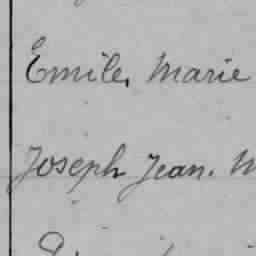 Emile, Marie
Joseph Jean.